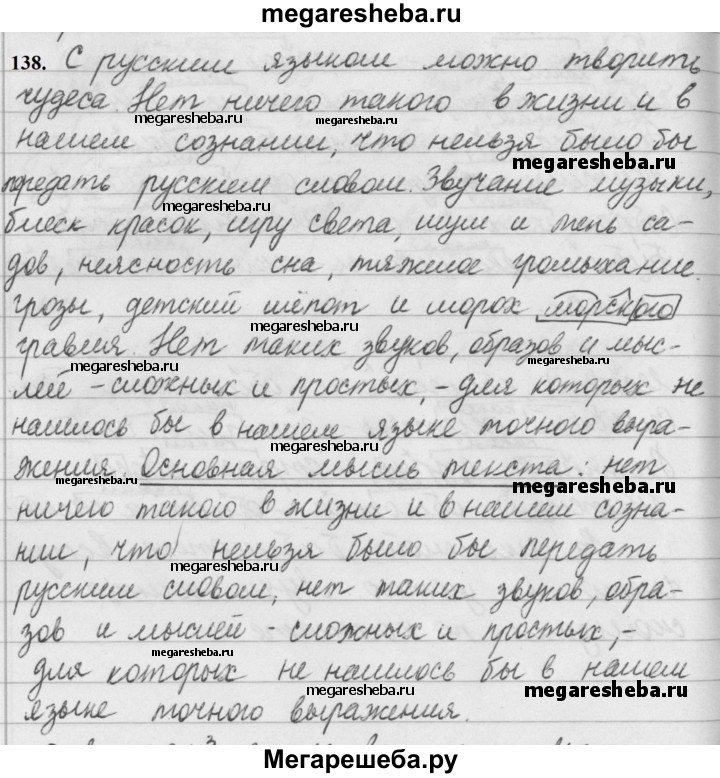 megaresheba.ru
138. С русским языком можно творить
чудеса. Нет ничего такого в жизни и в
megaresheba.ru megaresheba.ru
нашем сознании, что нельзя было бы
megaresheba.ru
передать русским словом. Звучание музыки,
megaresheba.ru
блеск красок, игру света, шум и тень са-
дов, неясность сна, тяжкое громыхание
грозы, детский шёпот и шорох морского
megaresheba.ru
гравия. Нет таких звуков, образов и мыс-
megaresheba.ru
лей - сложных и простых, - для которых не
нашлось бы в нашем языке точного выра-
megaresheba.ru
жения. Основная мысль текста: нет
megaresheba.ru megaresheba.ru
ничего такого в жизни и в нашем созна-
нии, что нельзя было бы передать
megaresheba.ru
русским словом, нет таких звуков, обра-
зов и мыслей - сложных и простых, -
megaresheba.ru
для которых не нашлось бы в нашем
megaresheba.ru megaresheba.ru
языке точного выражения.
Мегарешеба.ру